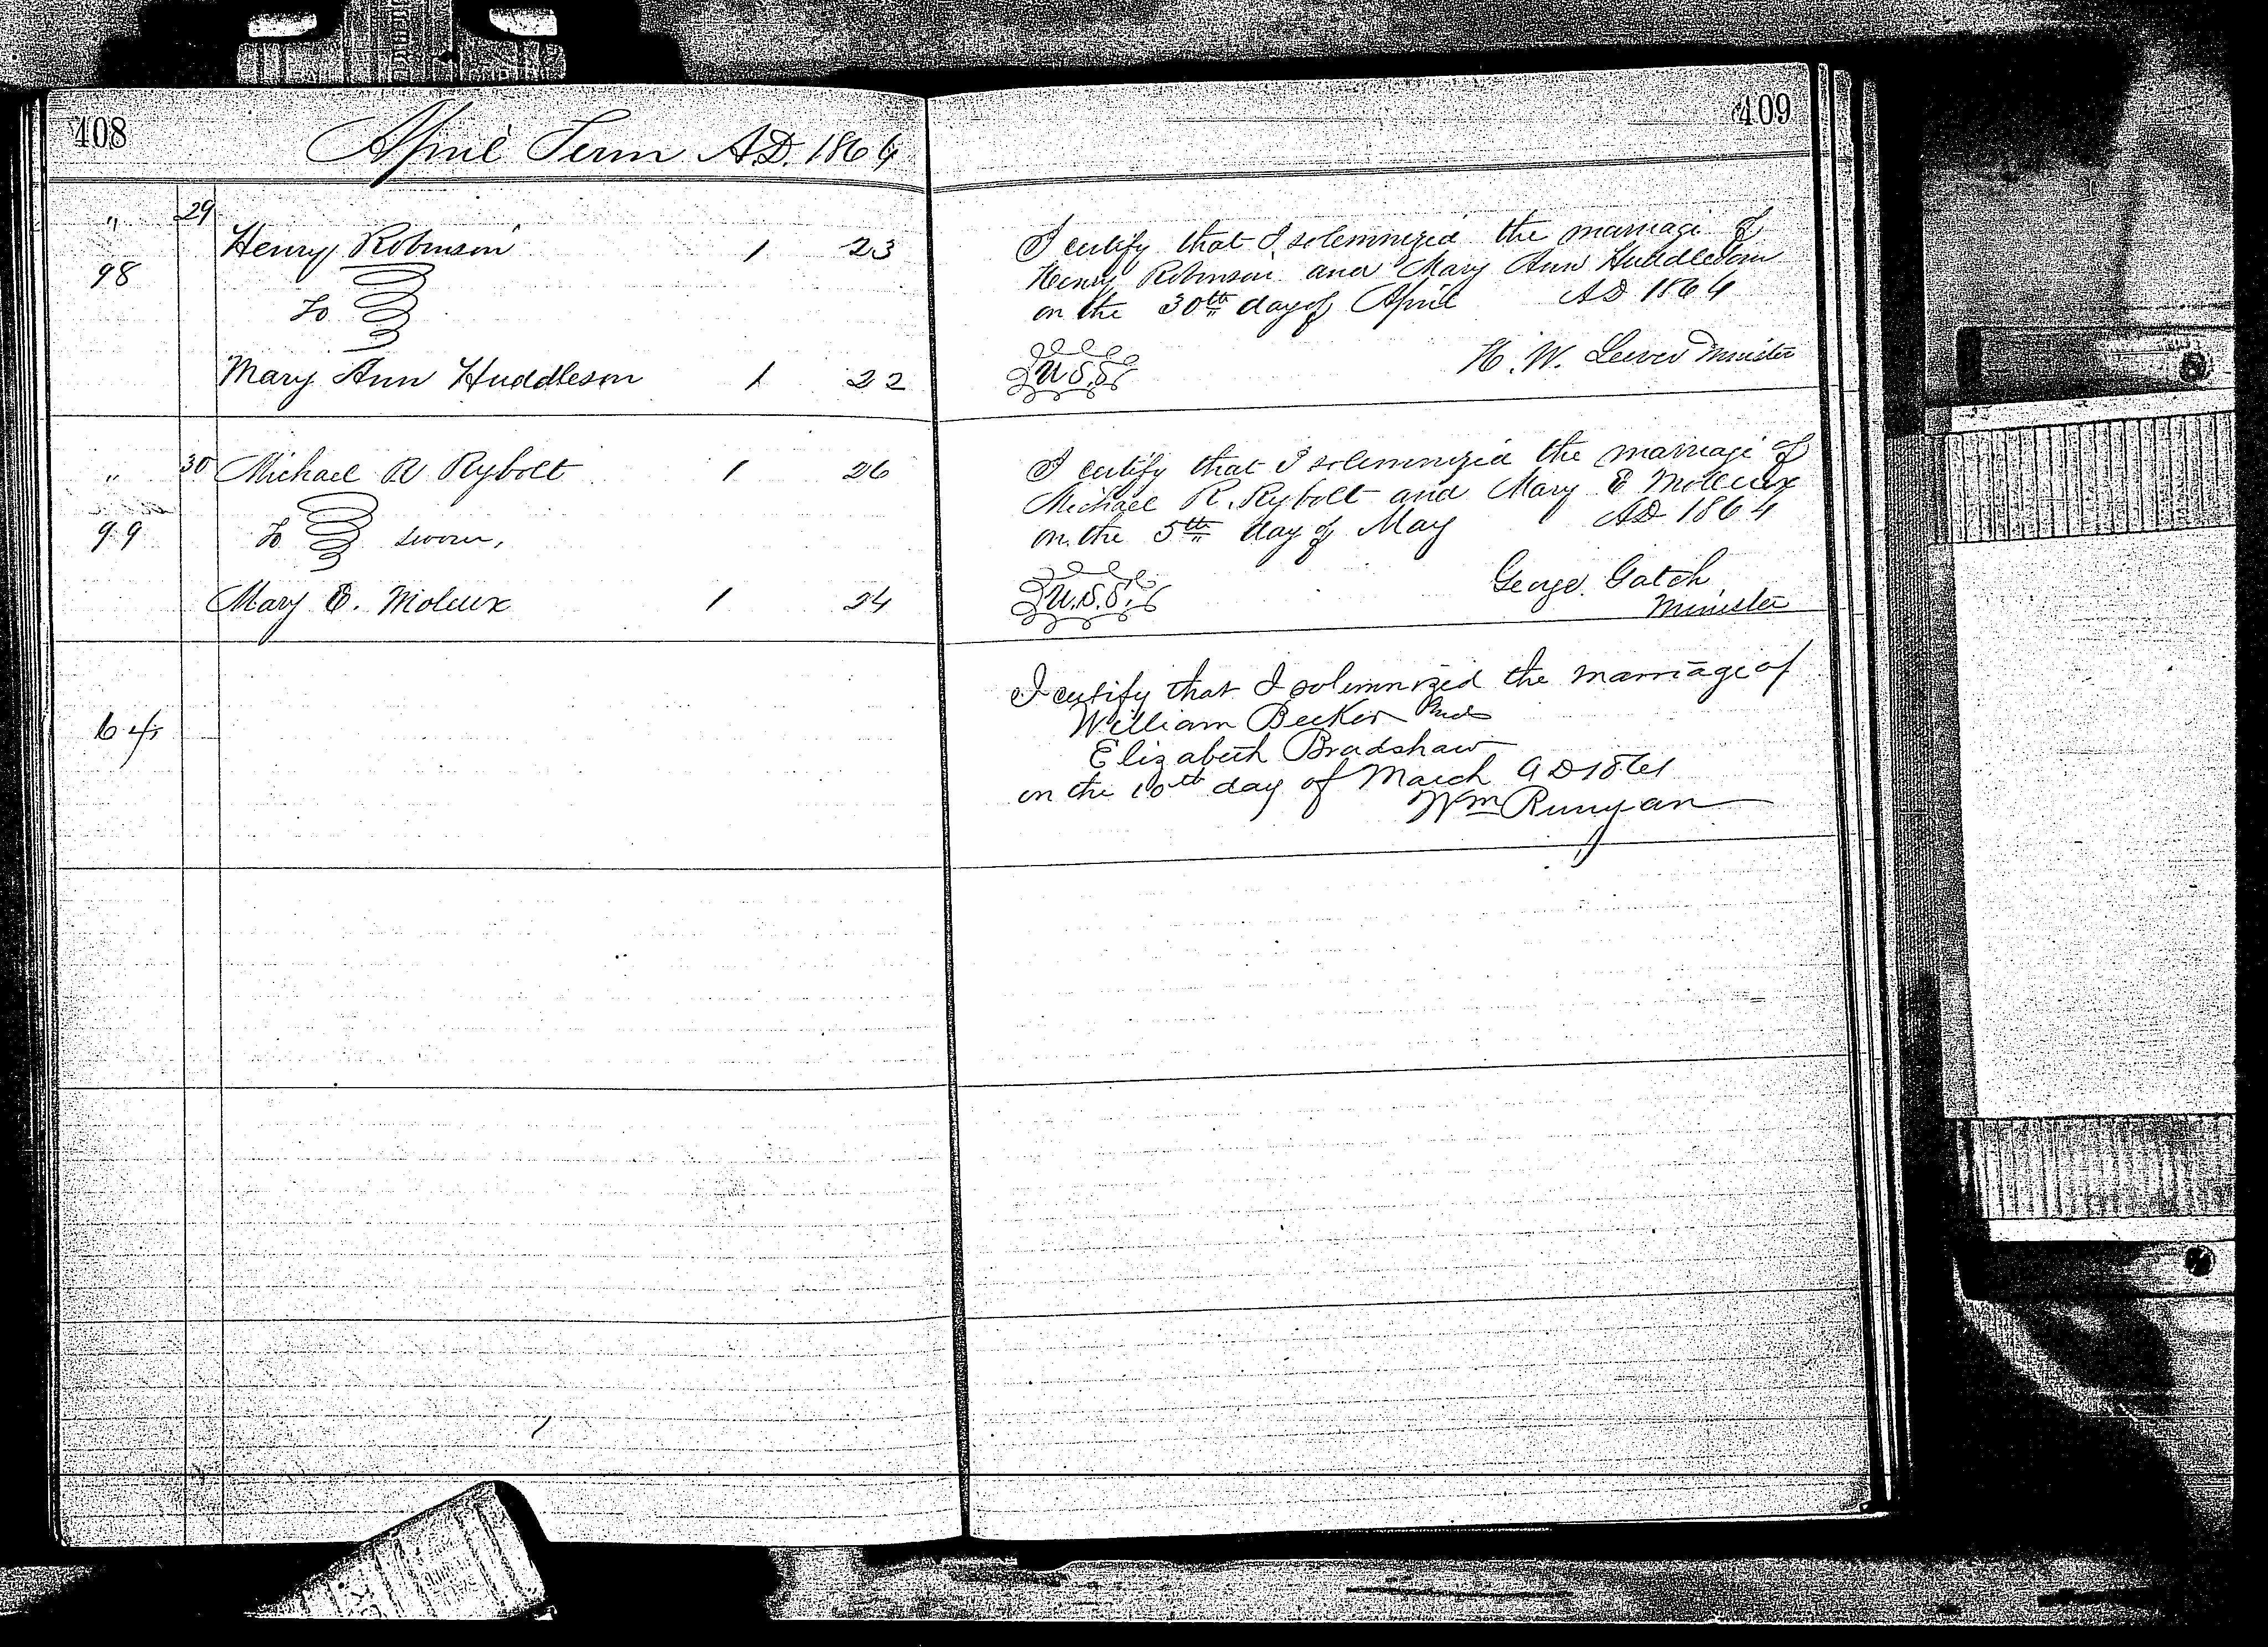 408
April Term A.D. 1864
" 29
Henry Robinson 1 23
98
To
Mary Ann Huddleson 1 22
" 30 Michael R Rybolt 1 26
99 To sworn,
Mary E. Moleux 1 24
64
409
I certify that I solemnized the marriage of
Henry Robinson and Mary Ann Huddleson
on the 30th day of April AD 1864
U.S.S. H. W. Minister
I certify that I solemnized the marriage of
Michael R. Rybolt and Mary E
on the 5th day of May AD 1864
U.S.S. George Gatch
Minister
I certify that I solemnized the marriage of
William Becker and
Elizabeth Bradshaw
on the 10th day of March A D
Wm Runyan